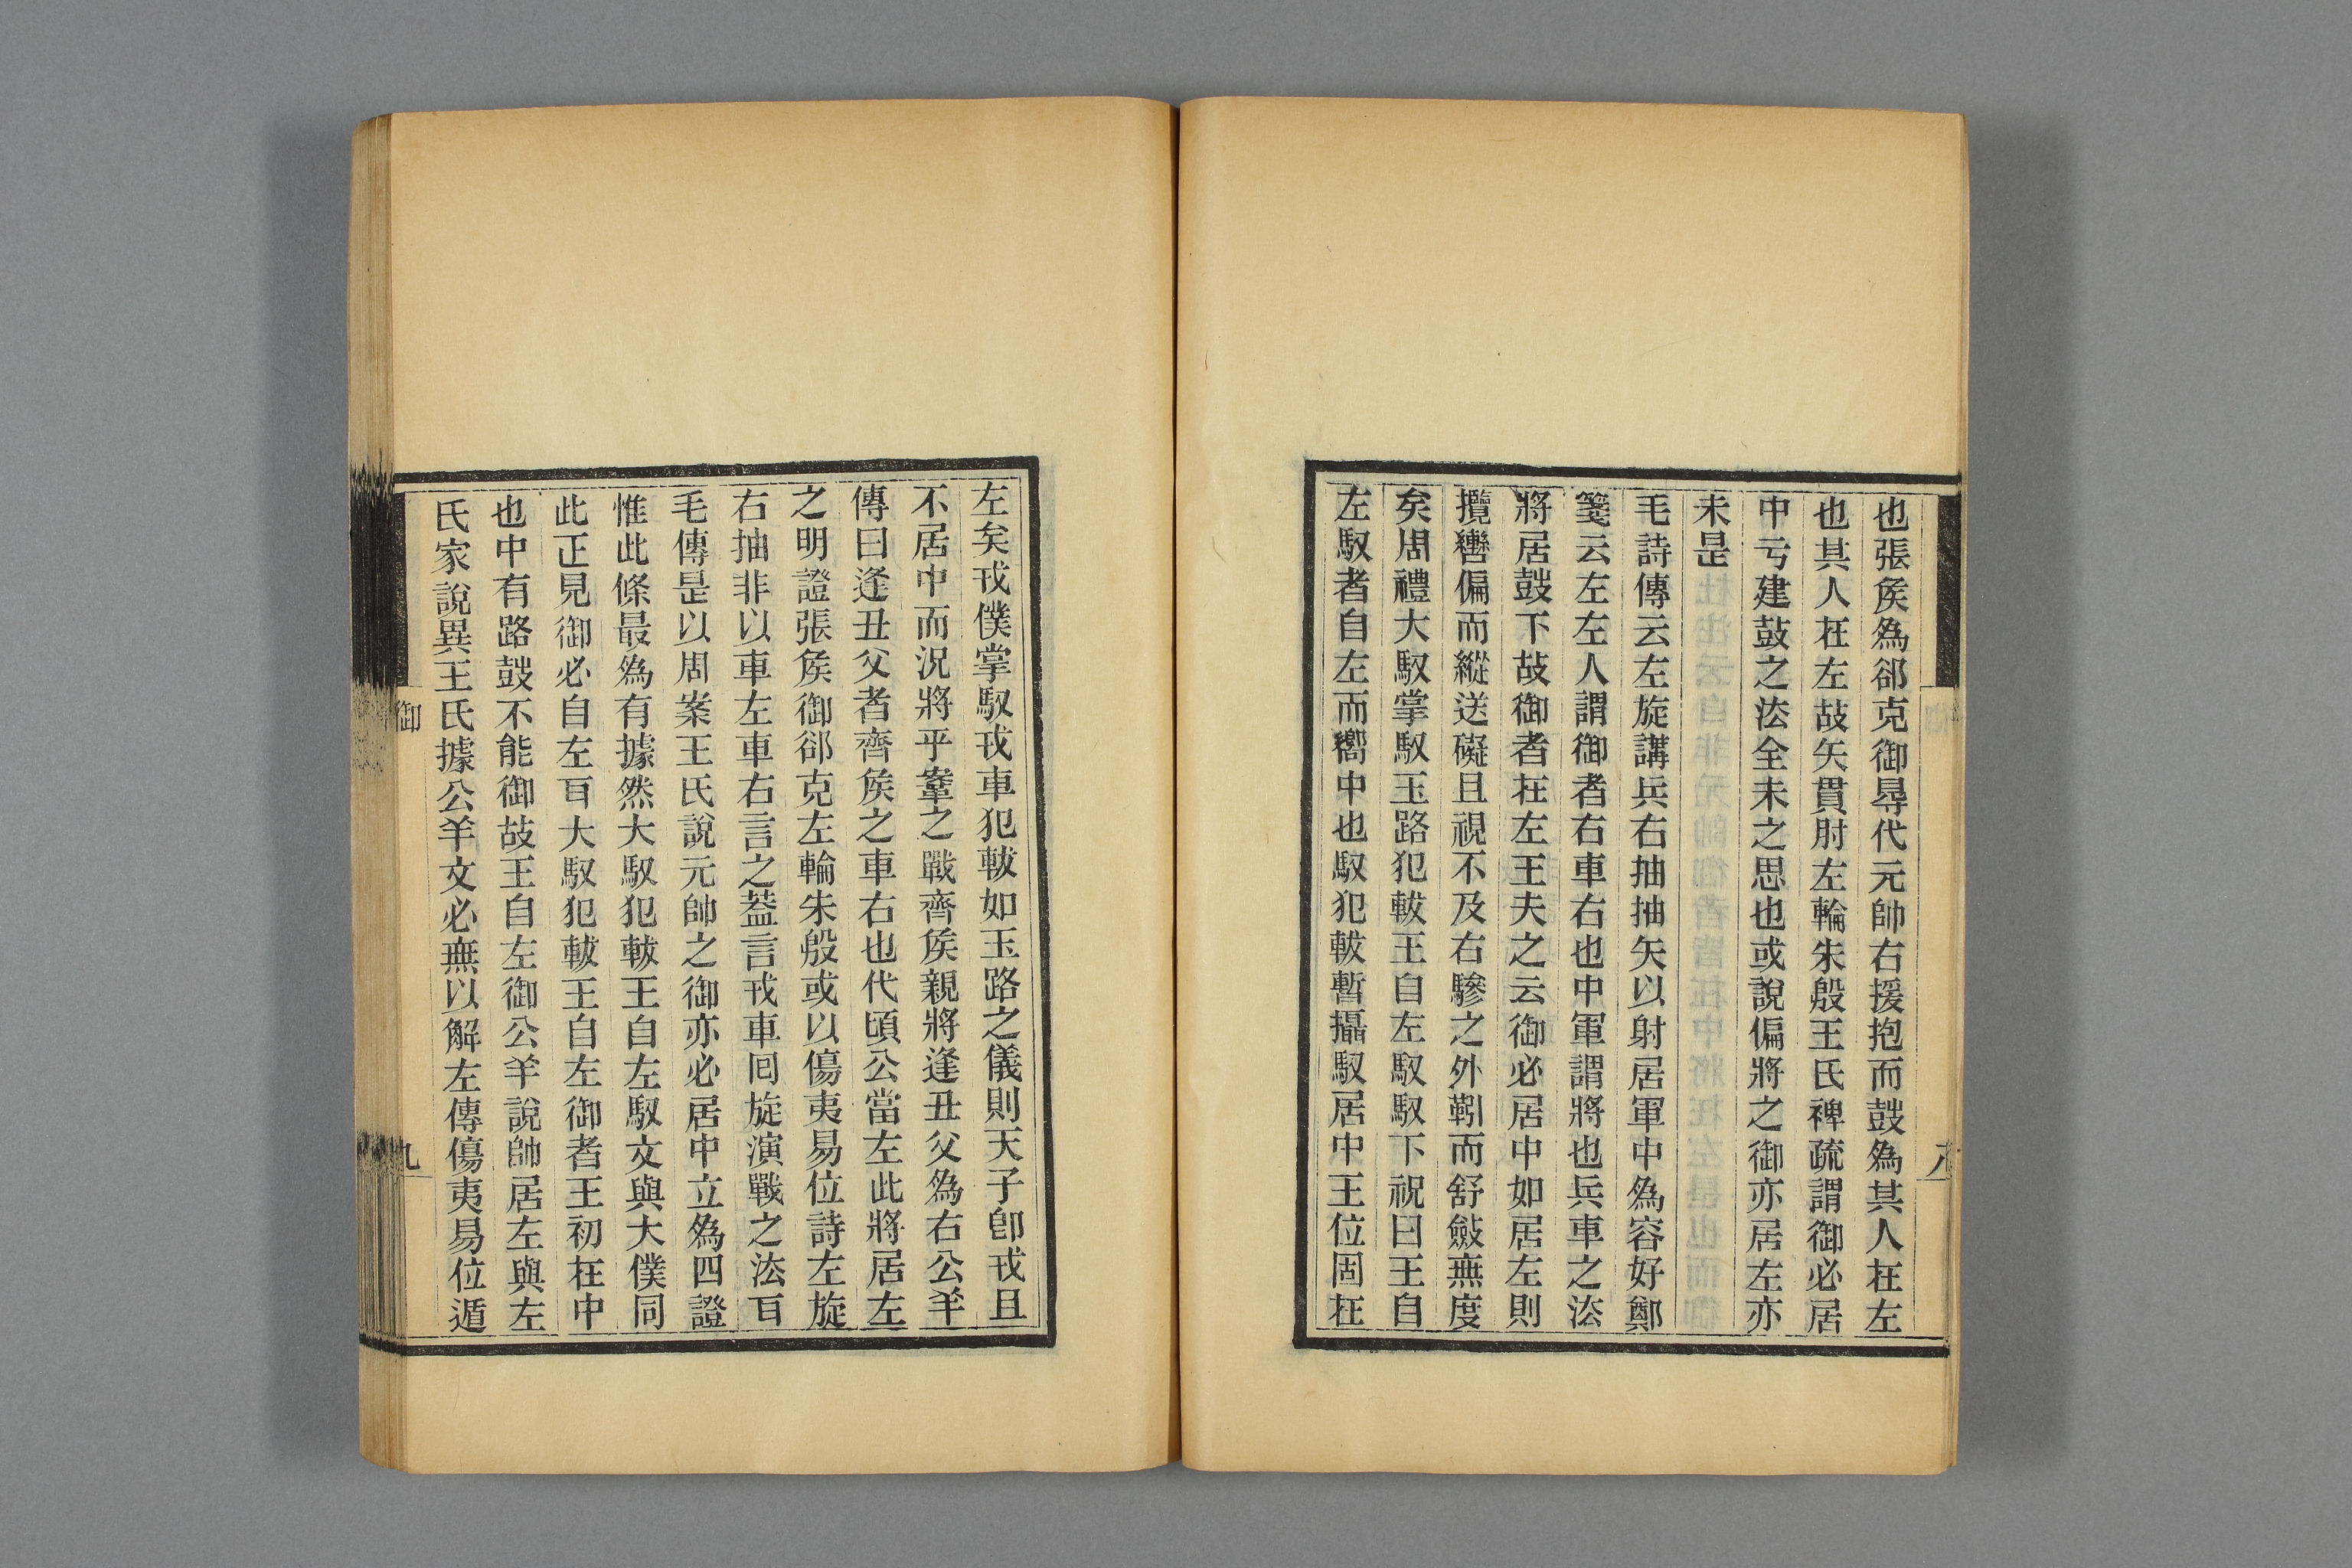 也張矦為郤克御㝷代元帥右援抱而鼓為其人在左
也其人在左故矢貫肘左輪朱殷王氏裨疏謂御必居
中亏建鼓之法全未之思也或說偏將之御亦居左亦
未是
毛詩傳云左旋講兵右抽抽矢以射居軍中為容好鄭
箋云左左人謂御者右車右也中軍謂將也兵車之法
將居鼓下故御者在左王夫之云御必居中如居左則
攬轡偏而縱送礙且視不及右驂之外靷而舒斂無度
矣周禮大馭掌馭玉路犯軷王自左馭馭下祝曰王自
左馭者自左而嚮中也馭犯軷暫攝馭居中王位固在
左矣戎僕掌馭戎車犯軷如玉路之儀則天子即戎且
不居中而況將乎鞌之戰齊矦親將逢丑父為右公羊
傳曰逢丑父者齊矦之車右也代頃公當左此將居左
之明證張矦御郤克左輪朱殷或以傷夷易位詩左旋
右抽非以車左車右言之蓋言戎車回旋演戰之法百
毛傳是以周案王氏說元帥之御亦必居中立為四證
惟此條最為有據然大馭犯軷王自左馭文與大僕同
此正見御必自左百大馭犯軷王自左御者王初在中
也中有路鼓不能御故王自左御公羊說帥居左與左
氏家說異王氏據公羊文必無以解左傳傷夷易位遁
御
九
八